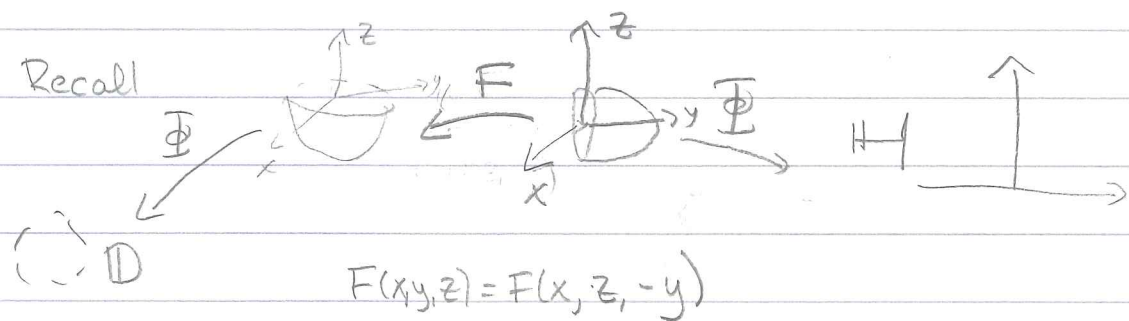 Recall
z
y
x
F
z
y
x
Φ
Φ
ℍ
𝔻
F(x,y,z) = F(x, z, -y)